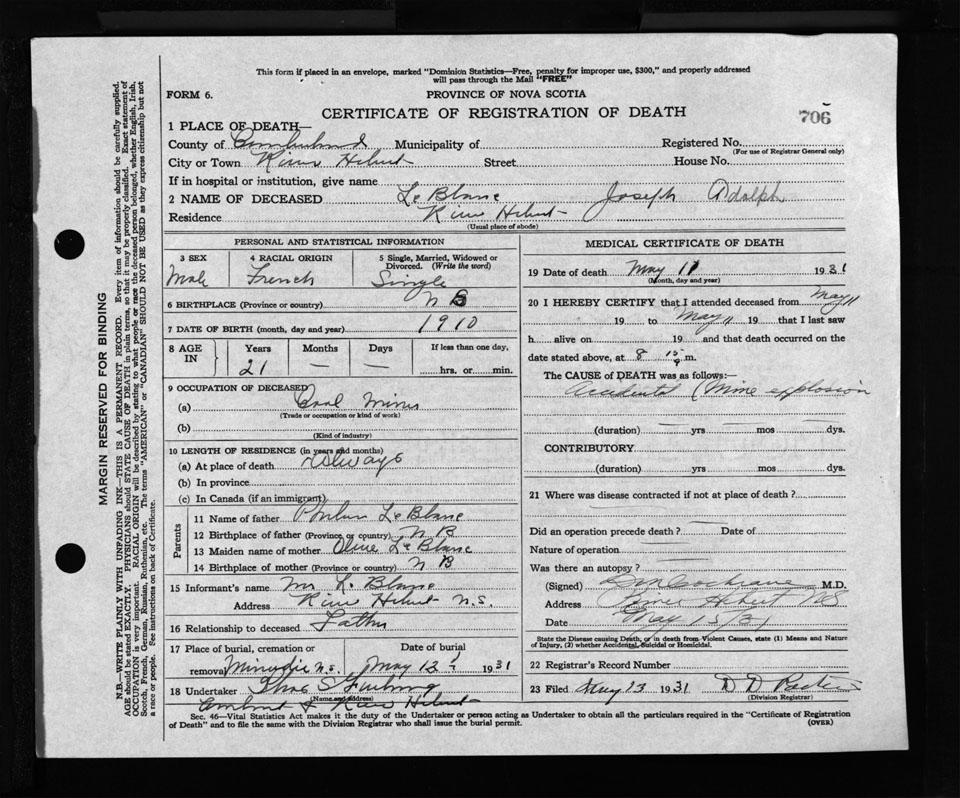 This form if placed in an envelope, marked "Dominion Statistics—Free, penalty for improper use, $300," and properly addressed
will pass through the Mail "FREE"
FORM 6.
PROVINCE OF NOVA SCOTIA
CERTIFICATE OF REGISTRATION OF DEATH
706
1 PLACE OF DEATH—
County of Cumberland Municipality of Registered No.
(For use of Registrar General only)
City or Town River Hebert Street House No.
If in hospital or institution, give name
2 NAME OF DECEASED Le Blanc Joseph Adolph
Residence River Hebert
(Usual place of abode)
PERSONAL AND STATISTICAL INFORMATION
3 SEX 4 RACIAL ORIGIN 5 Single, Married, Widowed or
Divorced. (Write the word)
Male French Single
6 BIRTHPLACE (Province or country) N B
7 DATE OF BIRTH (month, day and year) 1910
8 AGE IN Years Months Days If less than one day,
21 — — hrs. or min.
9 OCCUPATION OF DECEASED
(a) Coal Miner
(Trade or occupation or kind of work)
(b)
(Kind of industry)
10 LENGTH OF RESIDENCE (in years and months)
(a) At place of death Always
(b) In province
(c) In Canada (if an immigrant)
Parents
11 Name of father Le Blanc
12 Birthplace of father (Province or country) N B
13 Maiden name of mother Olive Le Blanc
14 Birthplace of mother (Province or country) N B
15 Informant's name Blanc
Address River Hebert N.S.
16 Relationship to deceased Father
17 Place of burial, cremation or Date of burial
removal Minudie N.S. May 13 1931
18 Undertaker
(Name and address)
Amherst & River Hebert
MEDICAL CERTIFICATE OF DEATH
19 Date of death May 11 1931
(Month, day and year)
20 I HEREBY CERTIFY that I attended deceased from May 11
19 to May 11 19 that I last saw
h alive on 19 and that death occurred on the
date stated above, at 8 15 m.
The CAUSE of DEATH was as follows:
Accidental (Mine explosion
(duration) yrs mos dys.
CONTRIBUTORY
(duration) yrs mos dys.
21 Where was disease contracted if not at place of death?
Did an operation precede death? Date of
Nature of operation
Was there an autopsy?
(Signed) Cochrane M.D.
Address River Hebert NS
Date May 13/31
State the Disease causing Death, or in death from Violent Causes, state (1) Means and Nature
of Injury, (2) whether Accidental, Suicidal or Homicidal.
22 Registrar's Record Number
23 Filed May 13 1931
(Division Registrar)
Sec. 46—Vital Statistics Act makes it the duty of the Undertaker or person acting as Undertaker to obtain all the particulars required in the "Certificate of Registration
of Death" and to file the same with the Division Registrar who shall issue the burial permit. (OVER)
MARGIN RESERVED FOR BINDING
N.B.—WRITE PLAINLY WITH UNFADING INK—THIS IS A PERMANENT RECORD. Every item of information should be carefully supplied.
AGE should be stated EXACTLY. PHYSICIANS should STATE CAUSE OF DEATH in plain terms, so that it may be properly classified. Exact statement of
OCCUPATION is very important. RACIAL ORIGIN will be described by stating to what people or race the deceased person belonged, whether English, Irish,
Scotch, French, German, Russian, Ruthenian, etc. The terms "AMERICAN" or "CANADIAN" SHOULD NOT BE USED as they express citizenship but not
a race or people. See instructions on back of Certificate.